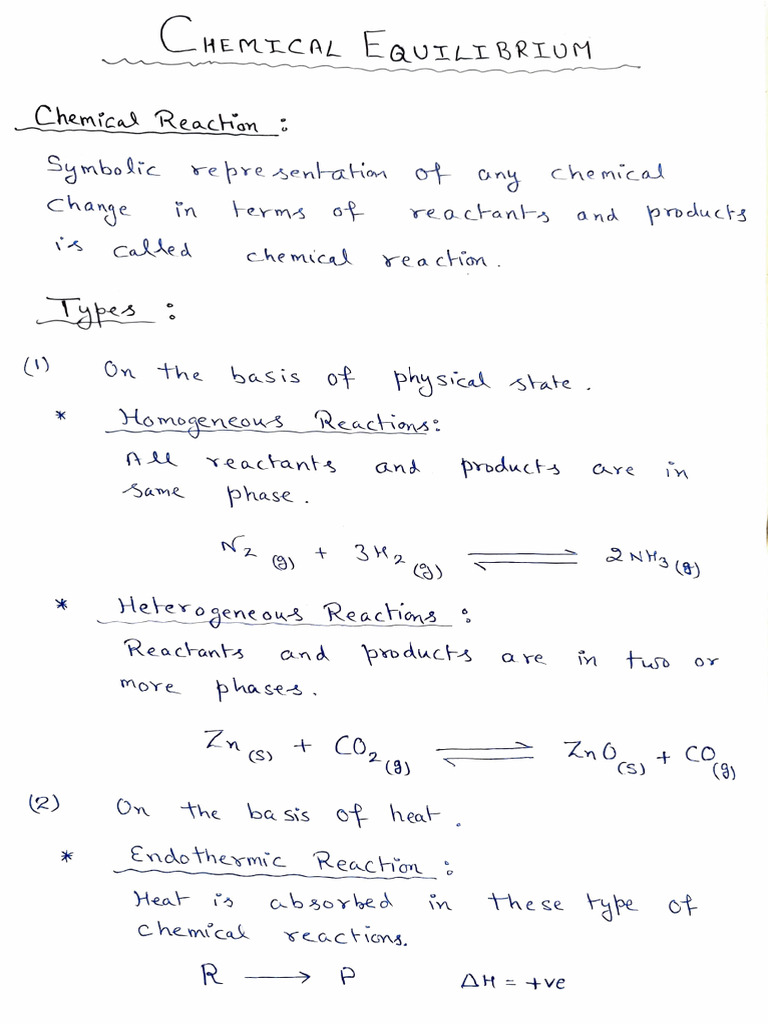 CHEMICAL EQUILIBRIUM
Chemical Reaction :
Symbolic representation of any chemical
change in terms of reactants and products
is called chemical reaction.
Types :
(1) On the basis of physical state.
* Homogeneous Reactions:
All reactants and products are in
same phase.
N2 (g) + 3H2 (g) ⇌ 2NH3 (g)
* Heterogeneous Reactions :
Reactants and products are in two or
more phases.
Zn (s) + CO2 (g) ⇌ ZnO (s) + CO (g)
(2) On the basis of heat.
* Endothermic Reaction :
Heat is absorbed in these type of
chemical reactions.
R ⟶ P ΔH = +ve